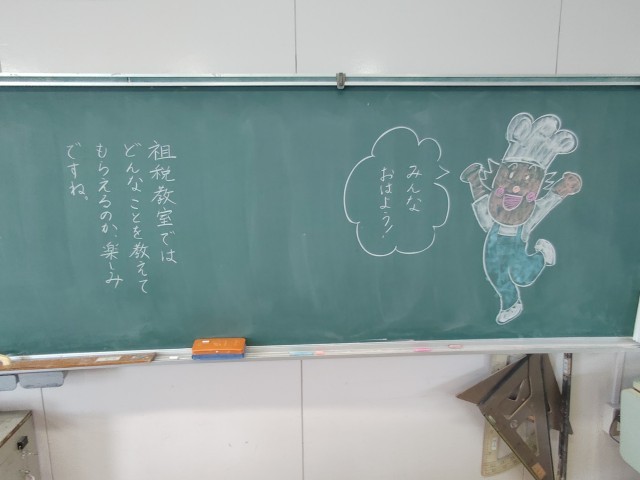 みんな
おはよう!
祖税教室では
どんなことを教えて
もらえるのか、楽しみ
ですね。